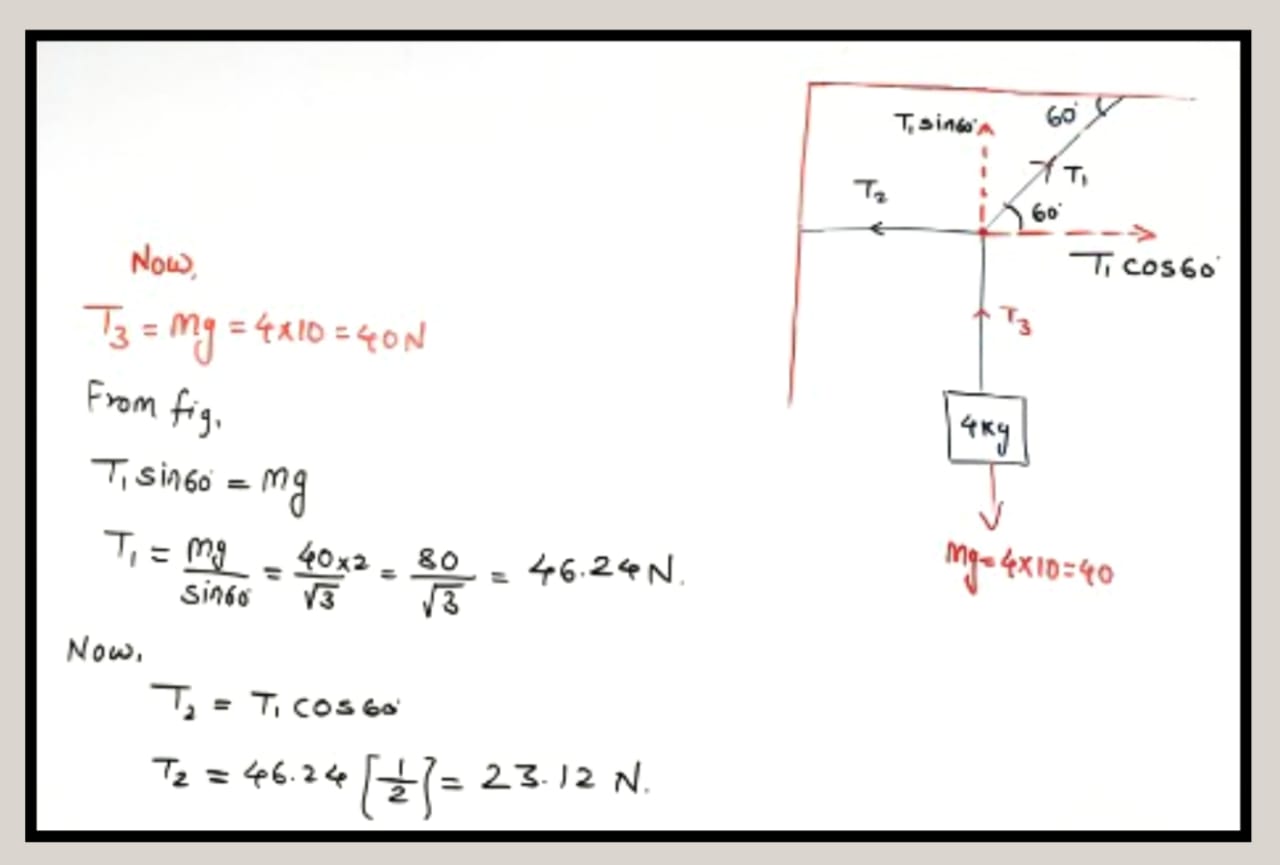 Now,
T₃ = mg = 4×10 = 40N
From fig,
T₁ sin60° = mg
T₁ = mg/sin60° = 40×2/√3 = 80/√3 = 46.24 N.
Now,
T₂ = T₁ cos60°
T₂ = 46.24 [1/2] = 23.12 N.
T₁ sin60°
60°
T₁
T₂
60°
T₁ cos60°
T₃
4kg
mg=4×10=40